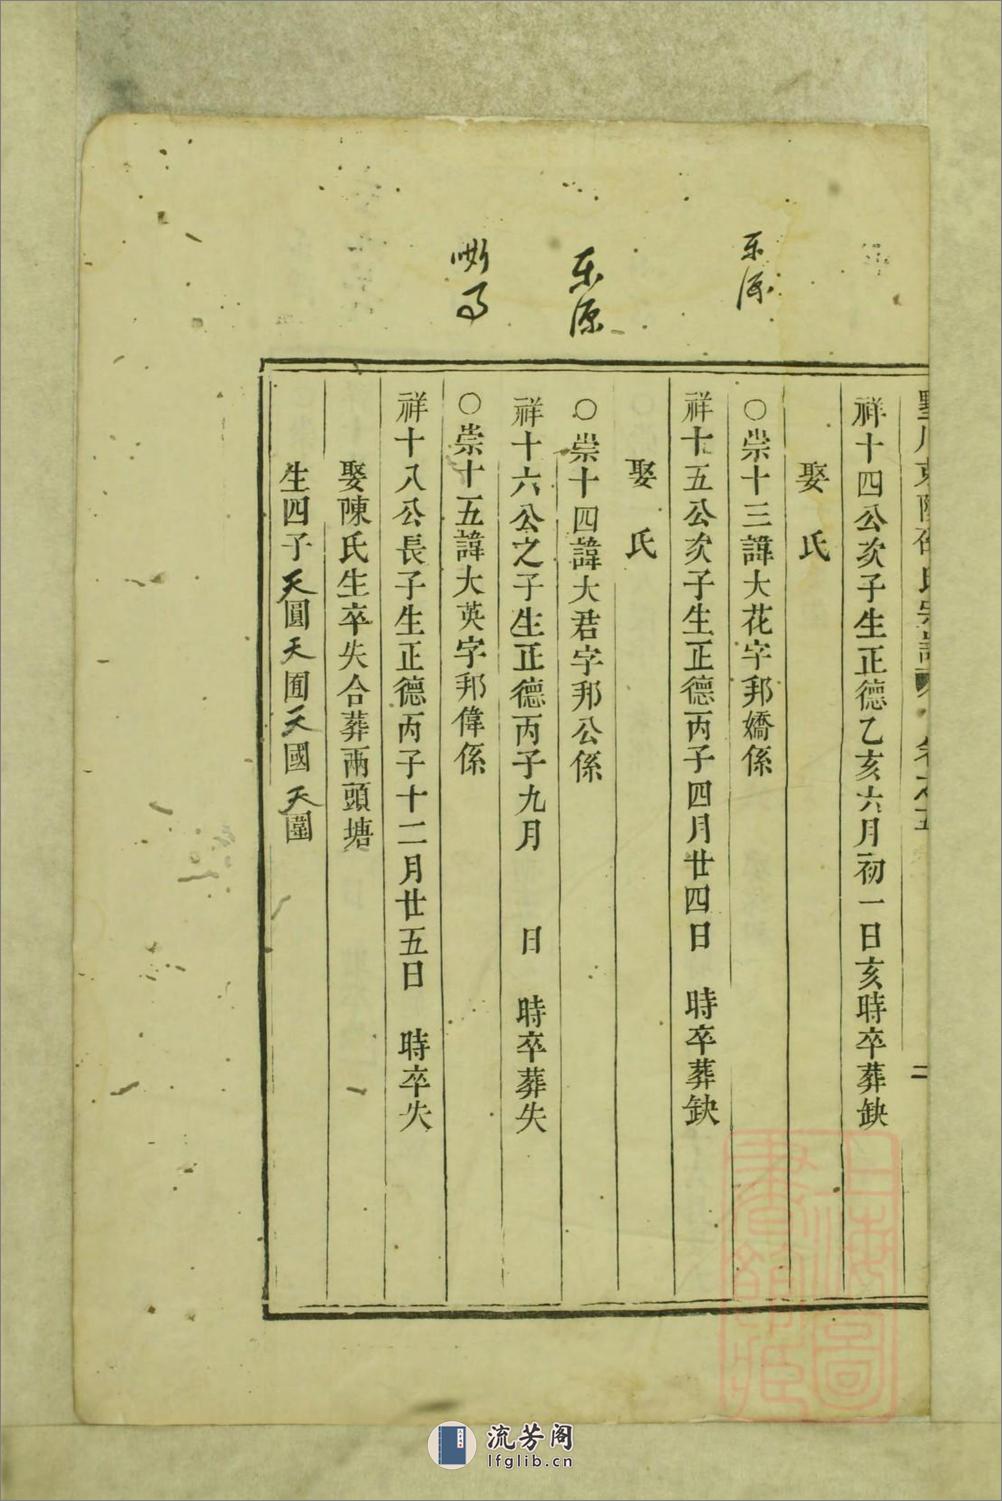 氏宗譜
卷之五
二
祥十四公次子生正德乙亥六月初一日亥時卒葬缺
娶 氏
○崇十三諱大花字邦嬌係
祥十五公次子生正德丙子四月廿四日 時卒葬缺
娶 氏
○崇十四諱大君字邦公係
祥十六公之子生正德丙子九月 日 時卒葬失
○崇十五諱大英字邦偉係
祥十八公長子生正德丙子十二月廿五日 時卒失
娶陳氏生卒失合葬兩頭塘
生四子天圓天囿天國天圍
上海圖書館藏
流芳阁
lfglib.cn